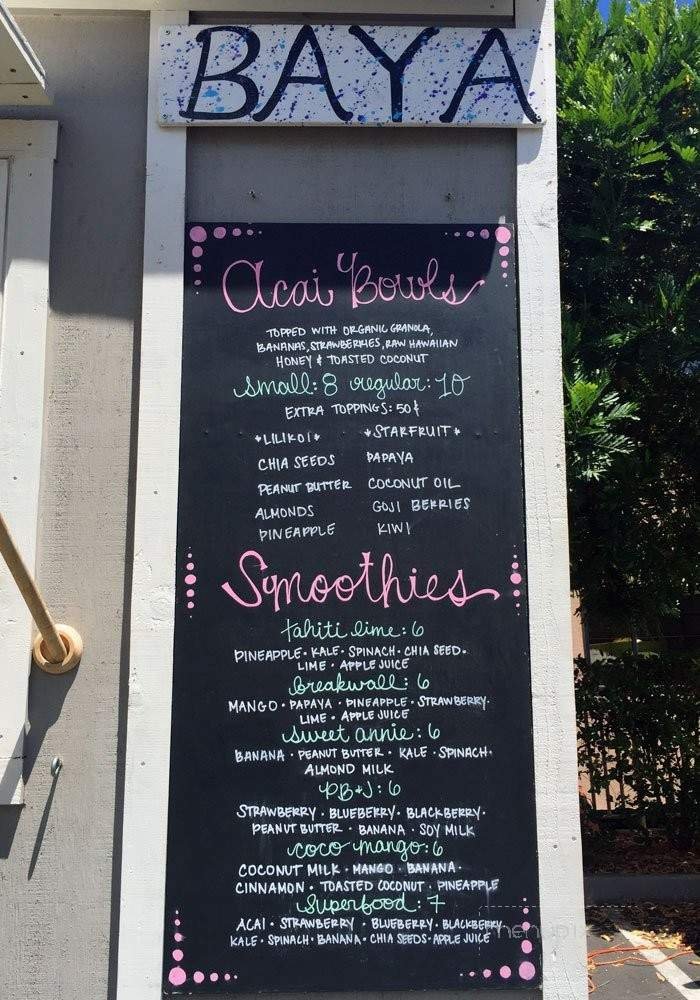 BAYA
Acai Bowls
TOPPED WITH ORGANIC GRANOLA,
BANANAS, STRAWBERRIES, RAW HAWAIIAN
HONEY & TOASTED COCONUT
small: 8 regular: 10
EXTRA TOPPINGS: 50¢
*LILIKOI* *STARFRUIT*
CHIA SEEDS PAPAYA
PEANUT BUTTER COCONUT OIL
ALMONDS GOJI BERRIES
PINEAPPLE KIWI
Smoothies
tahiti lime: 6
PINEAPPLE • KALE • SPINACH • CHIA SEED •
LIME • APPLE JUICE
breakwall: 6
MANGO • PAPAYA • PINEAPPLE • STRAWBERRY •
LIME • APPLE JUICE
sweet annie: 6
BANANA • PEANUT BUTTER • KALE • SPINACH •
ALMOND MILK
PB+J: 6
STRAWBERRY • BLUEBERRY • BLACKBERRY •
PEANUT BUTTER • BANANA • SOY MILK
coco mango: 6
COCONUT MILK • MANGO • BANANA •
CINNAMON • TOASTED COCONUT • PINEAPPLE
Superfood: 7
ACAI • STRAWBERRY • BLUEBERRY • BLACKBERRY
KALE • SPINACH • BANANA • CHIA SEEDS • APPLE JUICE